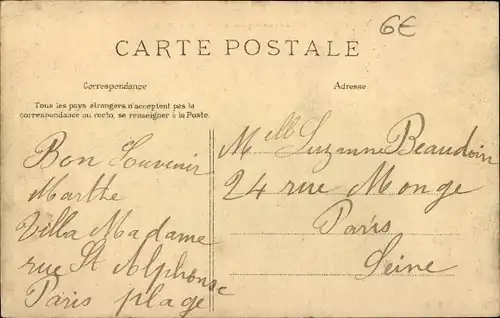 6€
CARTE POSTALE
Correspondance
Adresse
Tous les pays étrangers n'acceptent pas la
correspondance au recto, se renseigner à la Poste.
Bon Souvenir
Marthe
Villa Madame
rue St Alphonse
Paris plage
Melle Suzanne Beaudoin
24 rue Monge
Paris
Seine